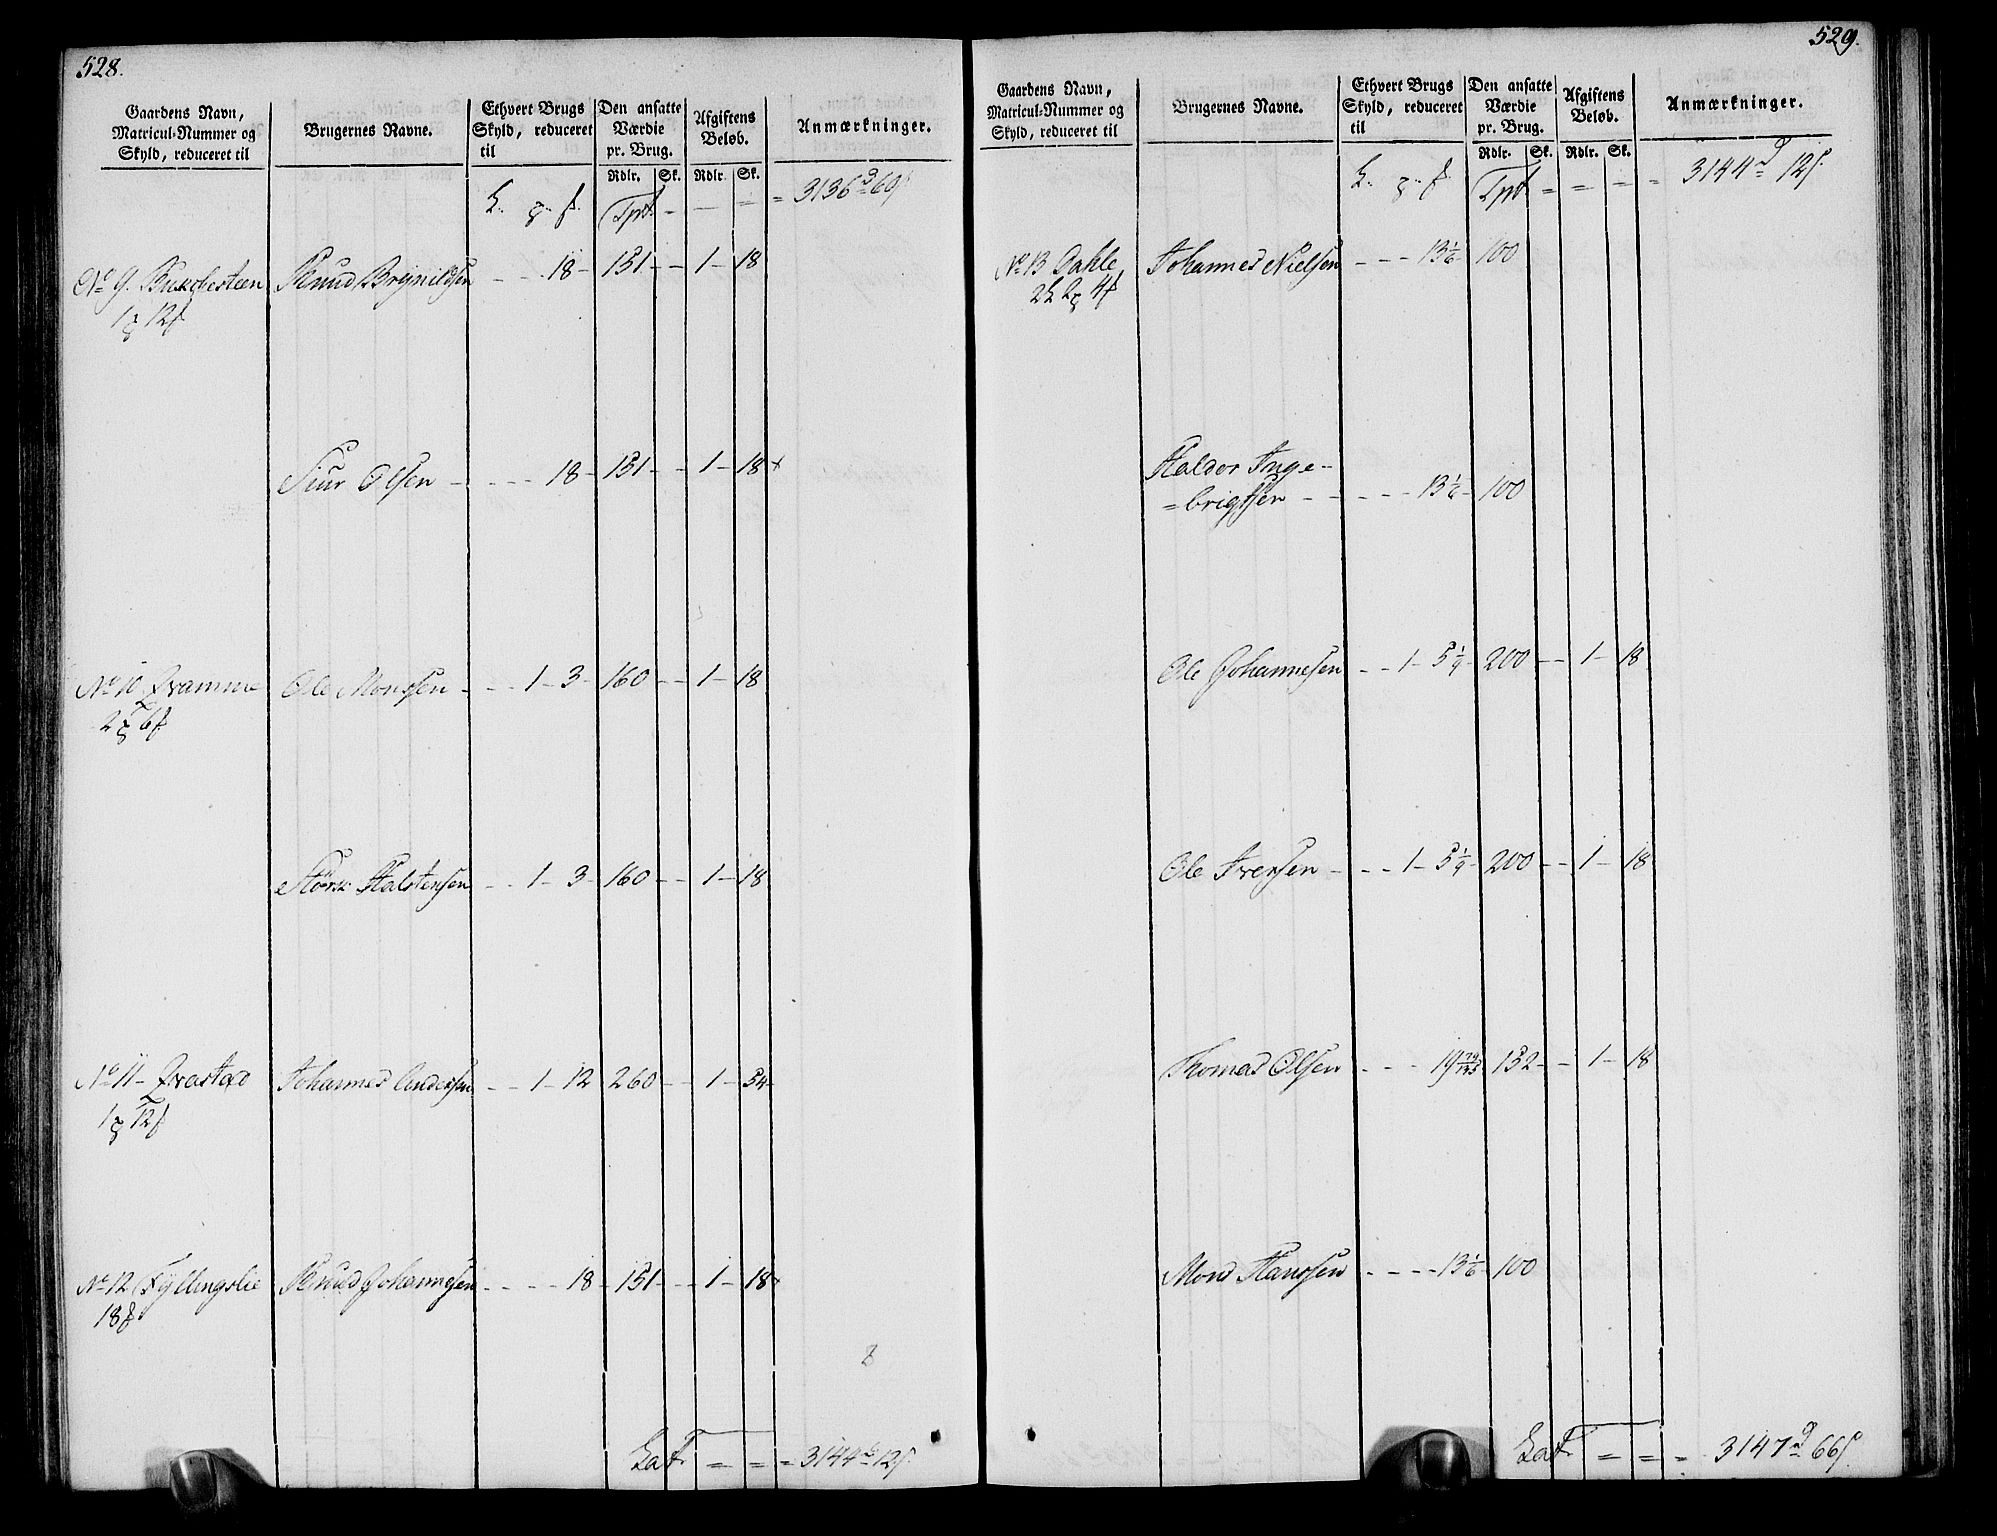 528.
Gaardens Navn, Matricul-Nummer og Skyld, reduceret til | Brugernes Navne. | Ethvert Brugs Skyld, reduceret til | Den ansatte Værdie pr. Brug. | Afgiftens Beløb. | Anmærkninger.
Rdlr. Sk. Rdlr. Sk.
Tprt. - - = = 3136 60
No 9. Knud Brynildsen - - - 18 - 151 - - 1 - 18
1 12
Siur Olsen - - - - 18 - 151 - - 1 - 18
No 10 Qvamme Ole Monssen - - - 1 - 3 - 160 - - 1 - 18
2 6
Størk Halstensen - - 1 - 3 - 160 - - 1 - 18
No 11 - Johannes Andersen - - 1 - 12 260 - - 1 - 54
1 12
No 12 Fyllingslie Knud Johannesen - - - - 18 - 151 - - 1 - 18
18
Lat. = = = 3144 12
529.
Gaardens Navn, Matricul-Nummer og Skyld, reduceret til | Brugernes Navne. | Ethvert Brugs Skyld, reduceret til | Den ansatte Værdie pr. Brug. | Afgiftens Beløb. | Anmærkninger.
Rdlr. Sk. Rdlr. Sk.
Tprt = = = = 3144 12
No 13 Dahle Johannes Nielsen - - - 13 1/6 - 100
2 2 4
Haldor Inge-
=brigtsen - - - - - 13 1/6 - 100
Ole Johannesen - - 1 - 5 1/9 - 200 - - 1 - 18
Ole Iversen - - - 1 - 5 1/9 - 200 - - 1 - 18
Thomas Olsen - - - 19 - 152 - - 1 - 18
Mons Hanssen - - - - 13 1/6 - 100
Lat. = = = 3147 66